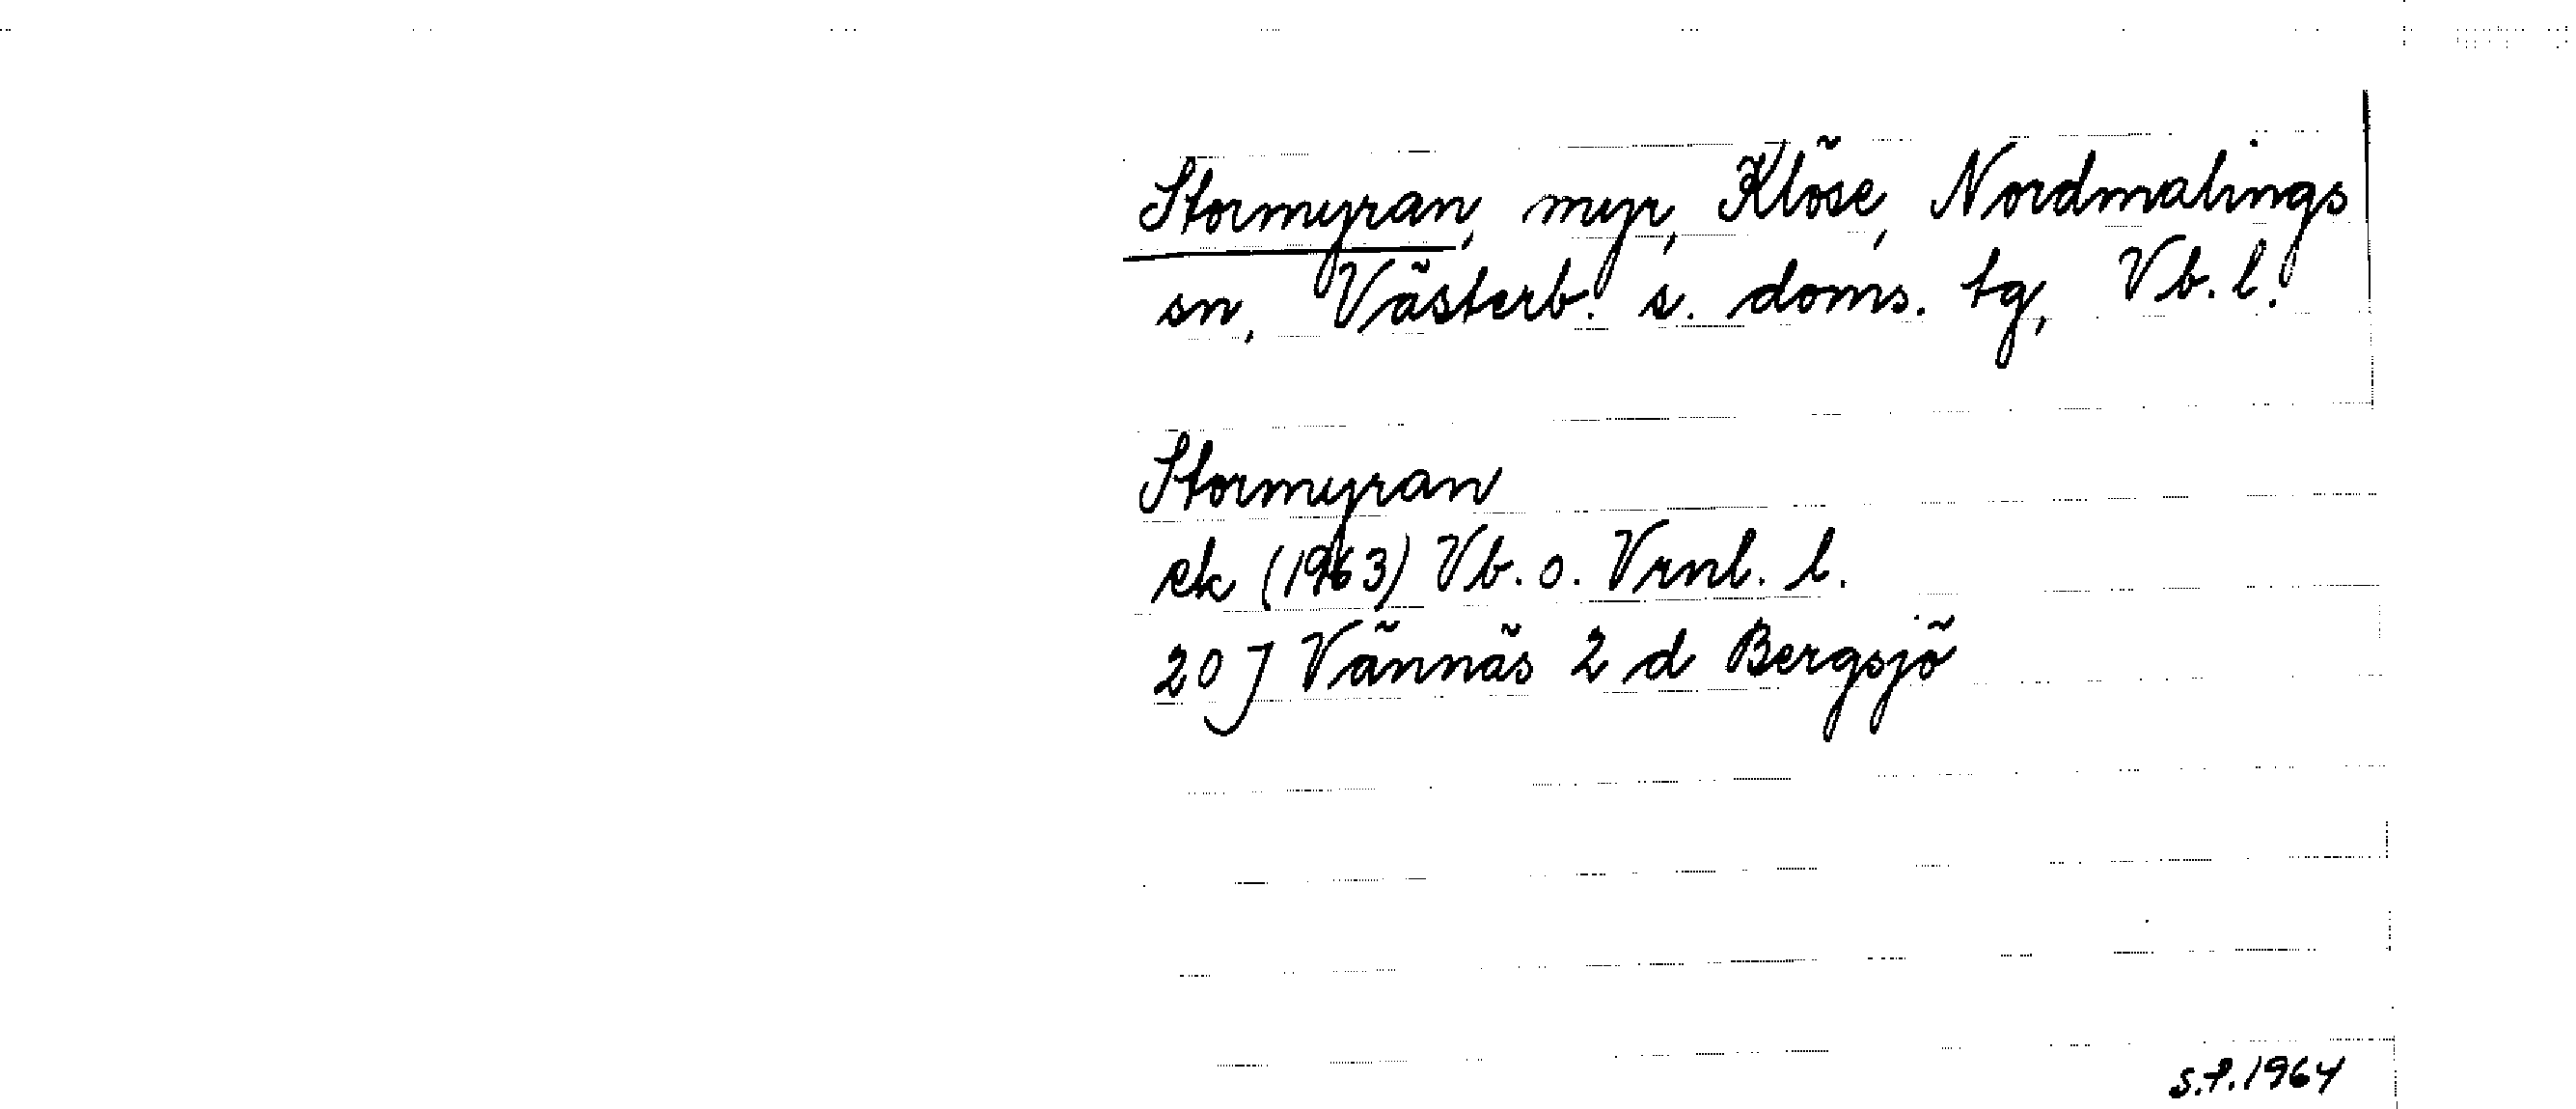 Stormyran, myr, Klöse, Nordmalings
sn, Västerb. s. doms. tg, Vb. l.
Stormyran
ek (1963) Vb. o. Vrnl. l.
20 J Vännäs 2 d Bergsjö
S.P. 1964